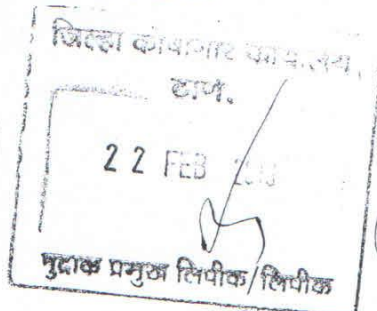 जिल्हा कोषागार कार्यालय,
ठाणे.
22 FEB
मुद्रांक प्रमुख लिपीक/लिपीक